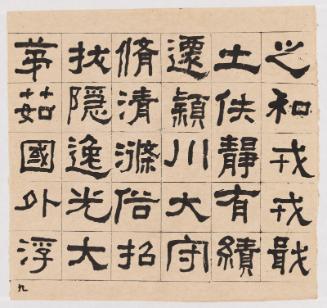 之和戎戎戢
士佚靜有績
遷潁川大守
脩清滌俗招
拔隱逸光大
茅茹國外浮
九